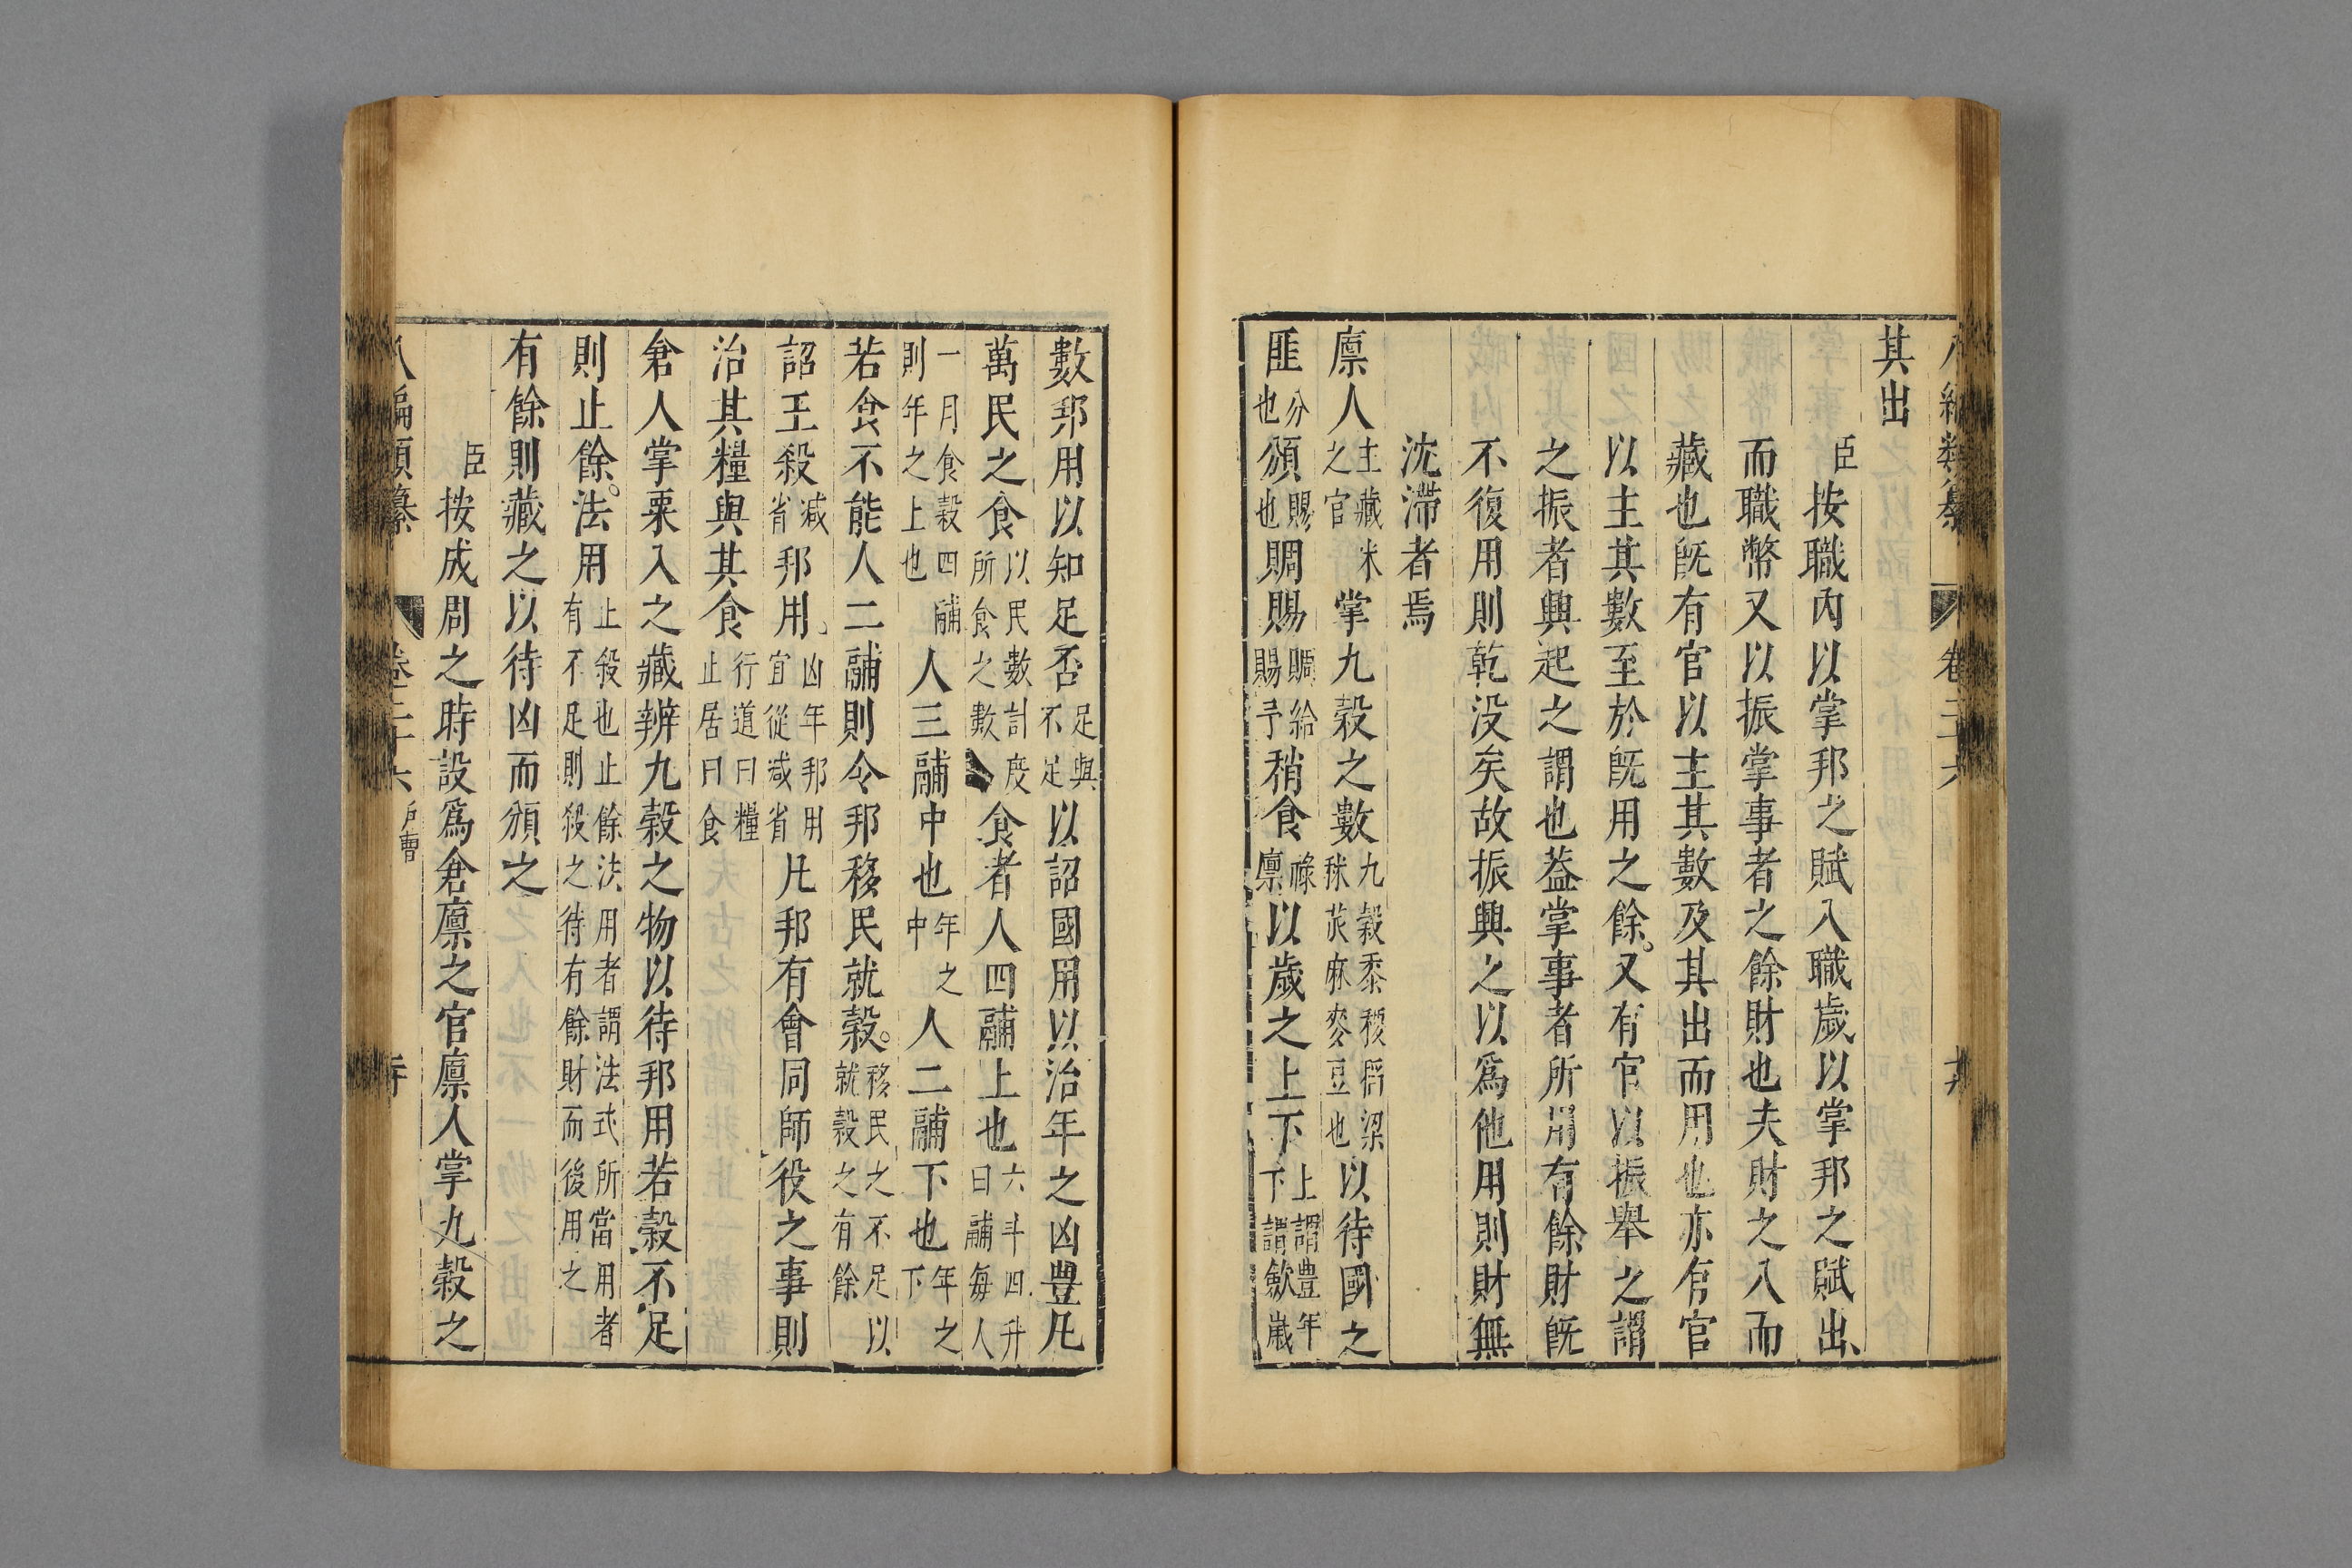 其出
臣按職內以掌邦之賦入職歲以掌邦之賦出
而職幣又以振掌事者之餘財也夫財之入而
藏也旣有官以主其數及其出而用也亦有官
以主其數至於旣用之餘又有官以振舉之謂
之振者興起之謂也葢掌事者所用有餘財旣
不復用則乾没矣故振興之以爲他用用則財無
沈滯者焉
廪人主藏米之官掌九穀之數九穀黍稷稻粱秫苽麻麥豆也以待國之
匪分也頒賜也賙賜賙給賜予稍食祿廪以歲之上下上謂豊年下謂歉歲
數邦用以知足否足與不足以詔國用以治年之凶豊凡
萬民之食以民數計度所食之數食者人四鬴上也六斗四升曰鬴每人
一月食穀四鬴則年之上也人三鬴中也年之中人二鬴下也年之下
若食不能人二鬴則令邦移民就穀移民之不足以就穀之有餘
詔王殺减省邦用凶年邦用宜從减省凡邦有會同師役之事則
治其糧與其食行道曰糧止居曰食
倉人掌粟入之藏辨九穀之物以待邦用若穀不足
則止餘法用止殺也止餘法用者謂法式所當用者有不足則殺之待有餘財而後用之
有餘則藏之以待凶而頒之
臣按成周之時設爲倉廪之官廪人掌九穀之
八編類纂 卷二十六 戶曹